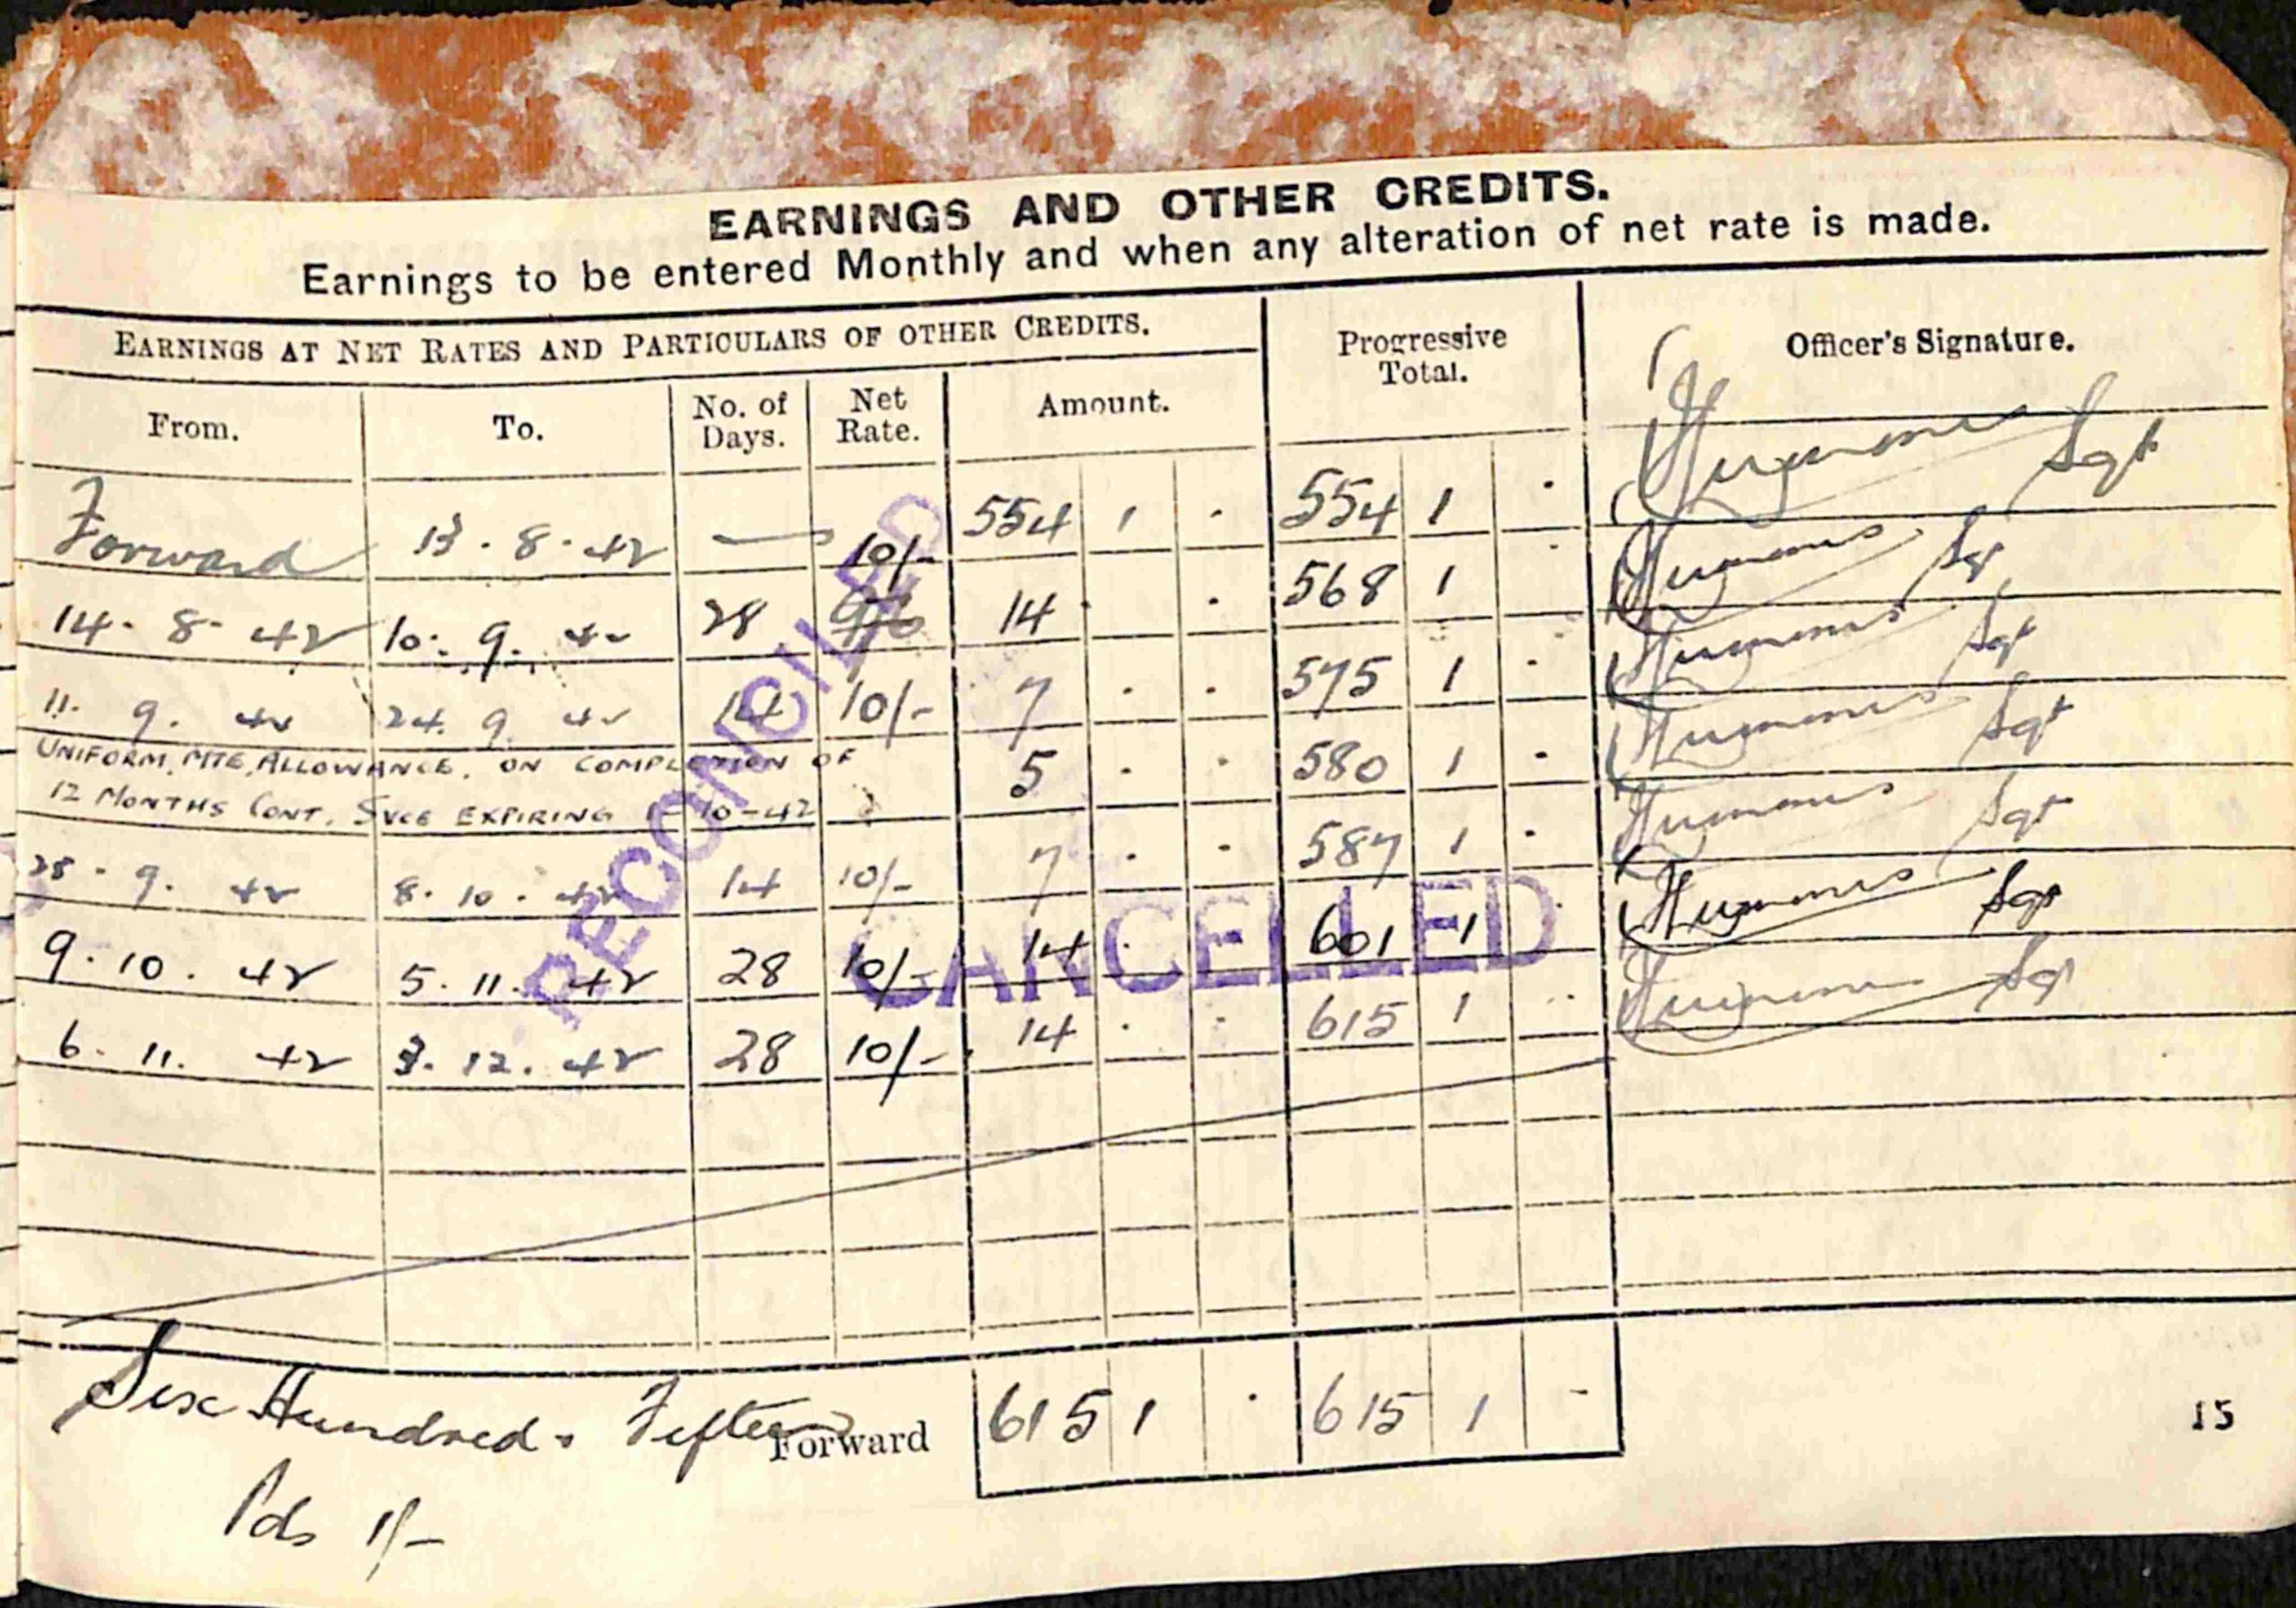 EARNINGS AND OTHER CREDITS.
Earnings to be entered Monthly and when any alteration of net rate is made.
EARNINGS AT NET RATES AND PARTICULARS OF OTHER CREDITS. Progressive Total. Officer's Signature.
From. To. No. of Days. Net Rate. Amount.
Forward 13. 8. 42 — 554 1 - 554 1 - Sgt
14. 8. 42 10. 9. 42 28 10/- 14 - - 568 1 - Sgt
11. 9. 42 24. 9. 42 14 10/- 7 - - 575 1 - Sgt
UNIFORM, ALLOWANCE. ON COMPLETION OF
12 MONTHS CONT. SVCE EXPIRING 10-42 5 - - 580 1 - Sgt
9. 42 8. 10. 42 14 10/- 7 - - 587 1 - Sgt
9. 10. 42 5. 11. 42 28 10/- 14 - - 601 1 - Sgt
6. 11. 42 3. 12. 42 28 10/- 14 - - 615 1 - Sgt
RECONCILED
CANCELLED
Six Hundred & Fifteen Forward 615 1 - 615 1 -
Pds 1/-
15